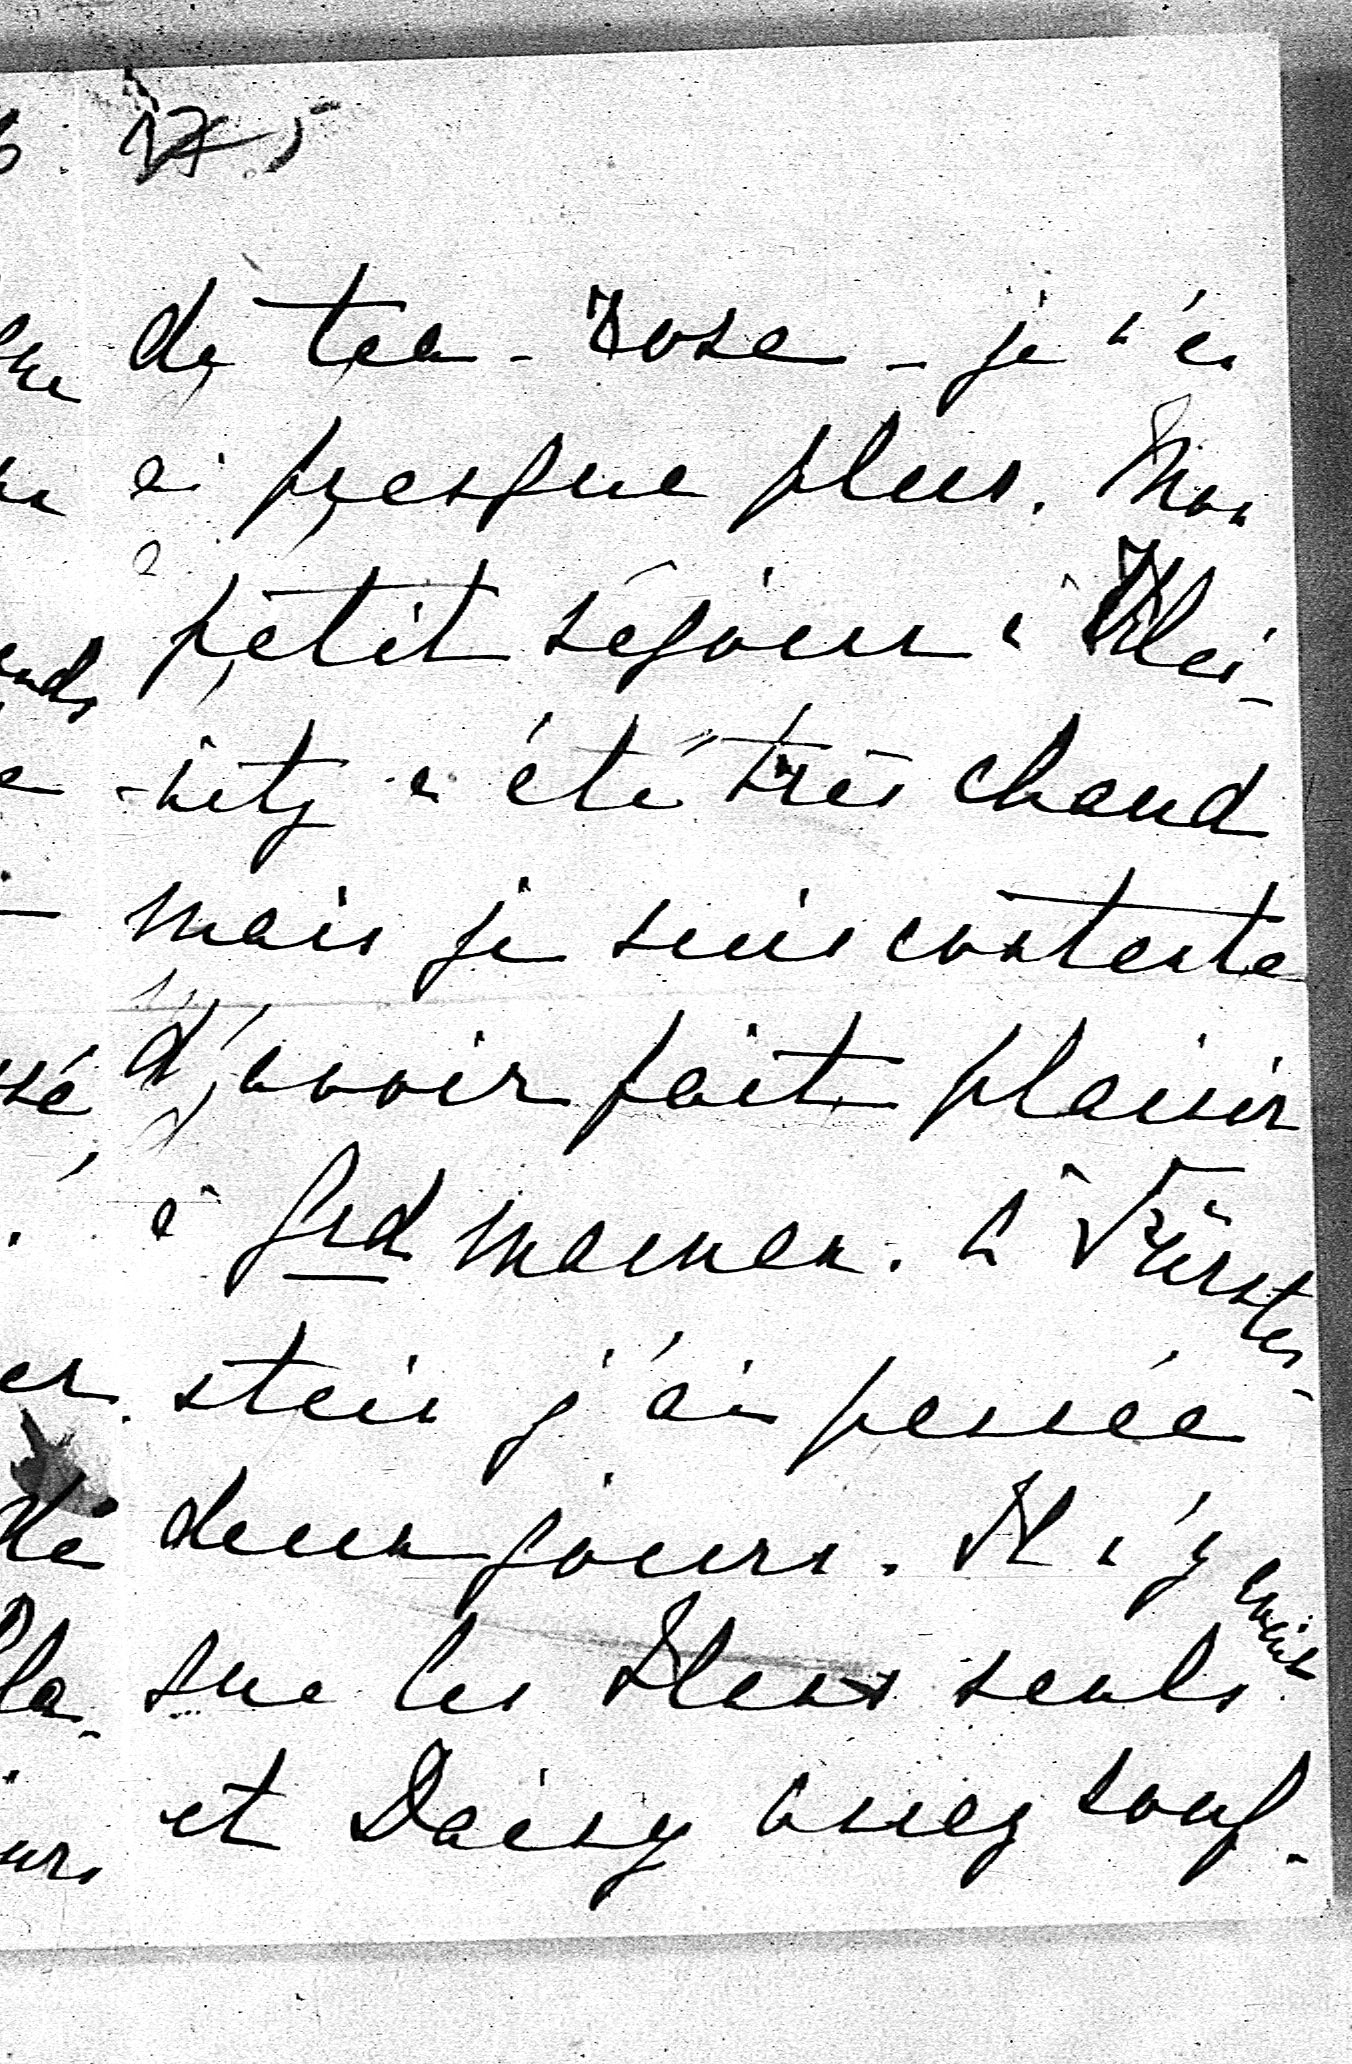 de tea-rose - je n'en
ai presque plus. Mon
petit séjour à Klei-
-nitz a été très chaud
mais je suis contente
d'avoir fait plaisir
à Grd maman. A Fürsten-
stein j'ai passée
deux jours. Il n'y avait
que les Pless seuls
et Daisy assez souf-